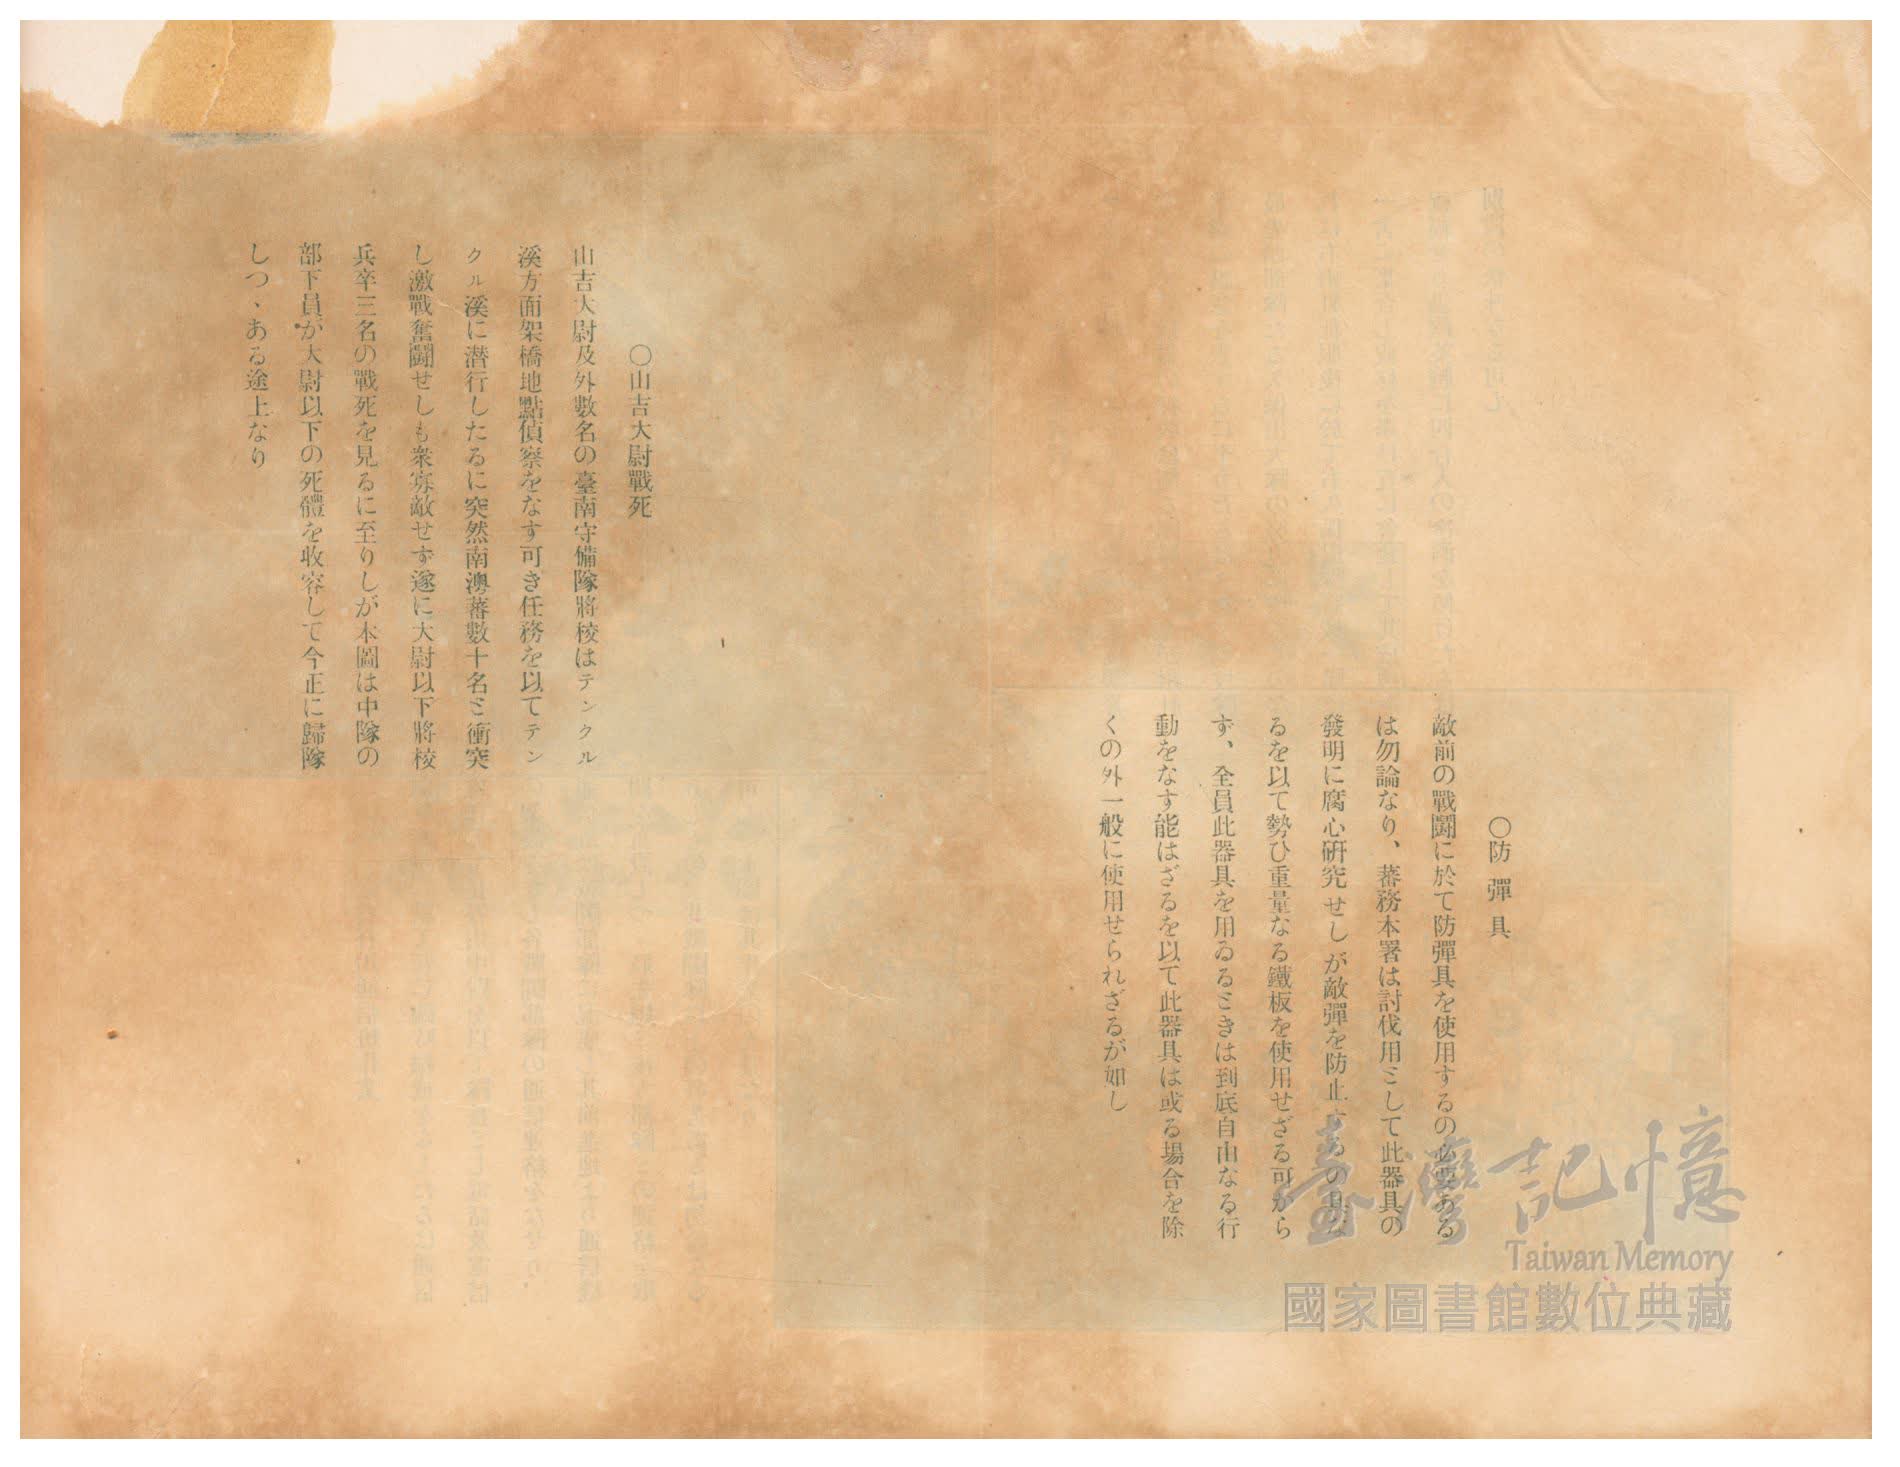 〇防彈具
敵前の戰鬪に於て防彈具を使用するの必要ある
は勿論なり、蕃務本署は討伐用ミして此器具の
發明に腐心硏究せしが敵彈を防止するの具な
るを以て勢ひ重量なる鐵板を使用せざる可から
ず、全員此器具を用ゐるミきは到底自由なる行
動をなす能はざるを以て此器具は或る場合を除
くの外一般に使用せられざるが如し
〇山吉大尉戰死
山吉大尉及外數名の臺南守備隊將校はテンクル
溪方面架橋地點偵察をなす可き任務を以てテン
クル溪に潜行したるに突然南澳蕃數十名ミ衝突
し激戰奮鬪せしも衆寡敵せず遂に大尉以下將校
兵卒三名の戰死を見るに至りしが本圖は中隊の
部下員が大尉以下の死體を收容して今正に歸隊
しつヽある途上なり
臺灣記憶
Taiwan Memory
國家圖書館數位典藏